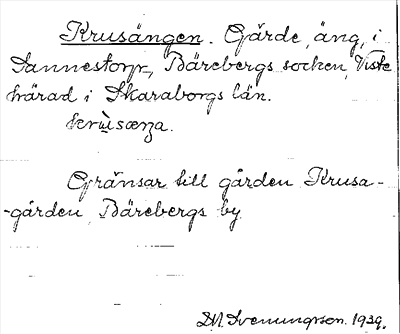 Krusängen. Gärde, äng, i
Sannestorp, Bärebergs socken, Viste
härad i Skaraborgs län.
krùsæŋa.
Gränsar till gården Krusa-
-gården, Bärebergs by.
D.A. Svenungsson. 1939.